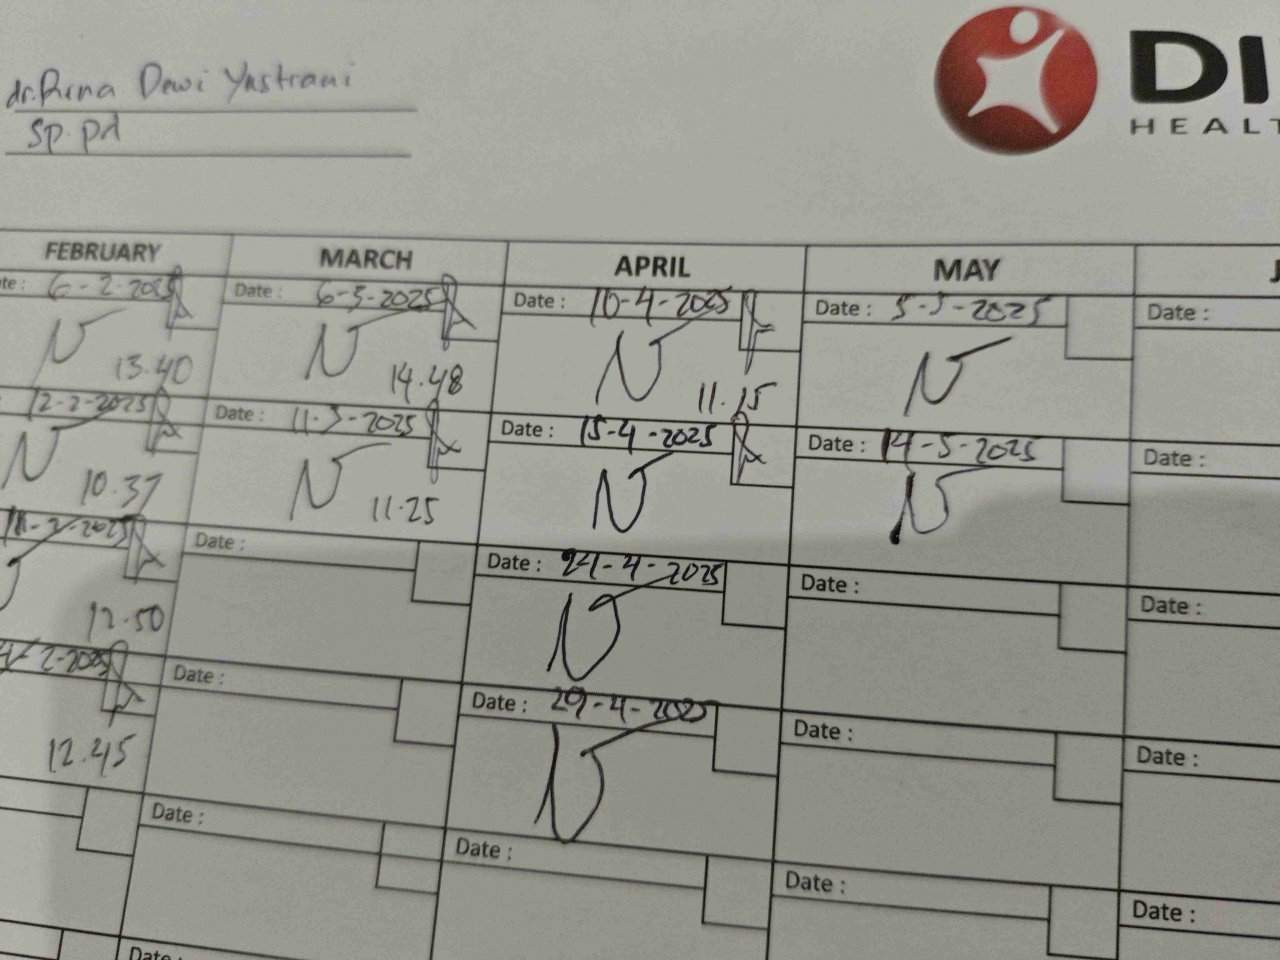 dr. Rina Dewi Yastrani
Sp. pd
DI
HEALT
FEBRUARY MARCH APRIL MAY J
te: 6-2-2025 Date : 6-3-2025 Date : 10-4-2025 Date : 5-5-2025 Date :
13.40 14.48 11.15
12-2-2025 Date : 11-3-2025 Date : 15-4-2025 Date : 14-5-2025 Date :
10.37 11.25
18-2-2025 Date : Date : 24-4-2025 Date : Date :
12.50
2-2025 Date : Date : 29-4-2025 Date : Date :
12.45
Date : Date : Date : Date :
Date :